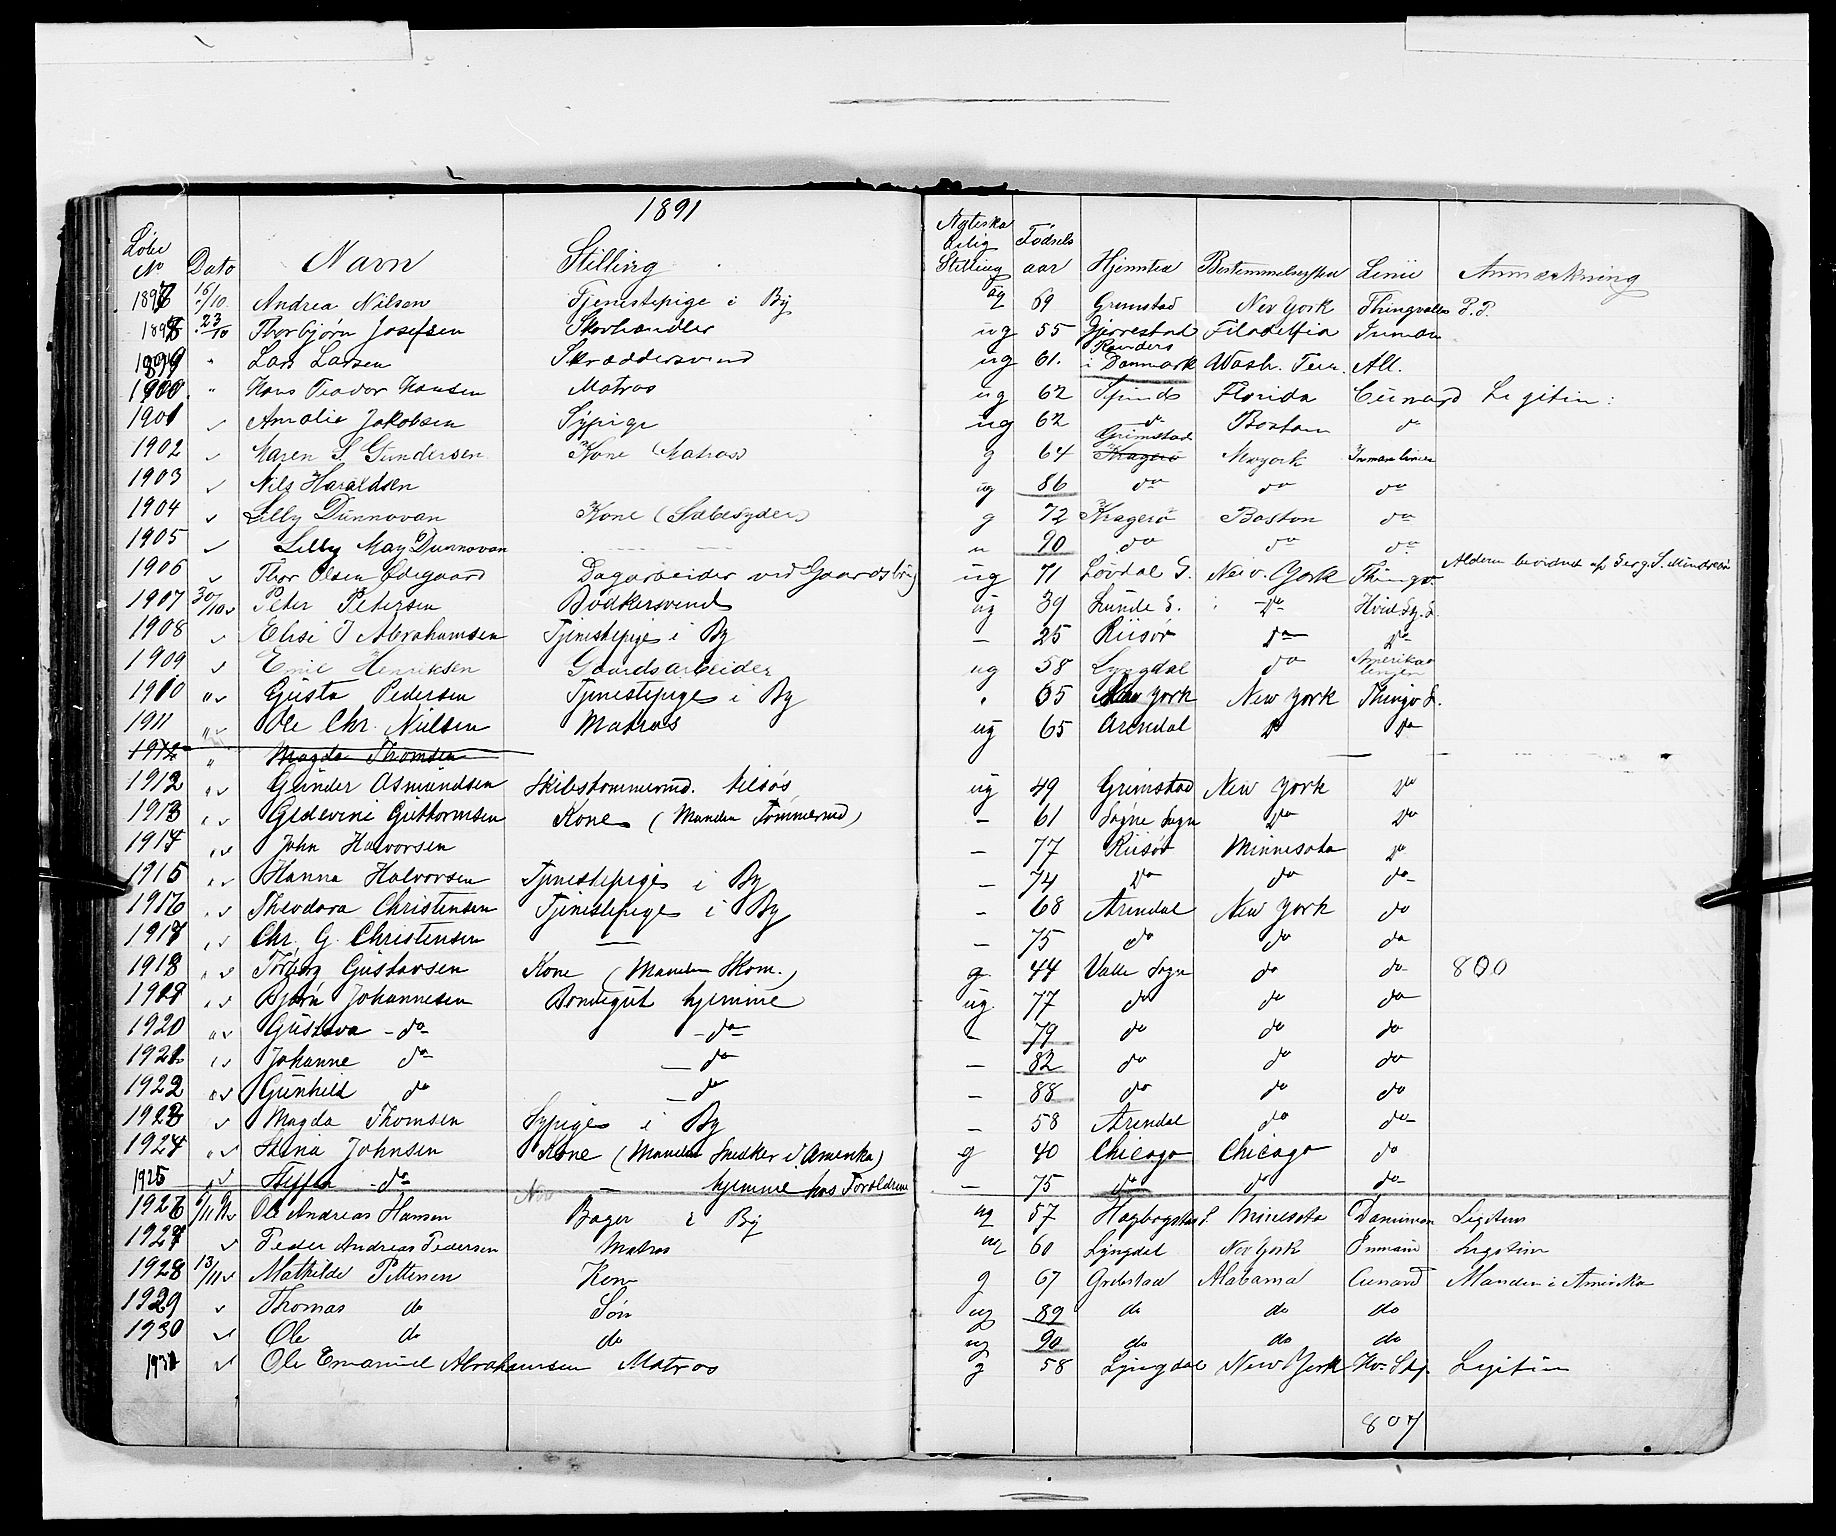 1891
Løbe No Dato Navn Stilling Ægteskabelig Stilling Fødselsaar Hjemsted Bestemmelsessted Linie Anmærkning
1897 16/10 Andrea Nilsen Tjenestepige i By ug 69 Grimstad New York Thingvalla P.P.
1898 23/10 Thorbjørn Josefsen Skohandler ug 55 Gjerrestad Filadelfia Inman
1899 " Lars Larsen Skræddersvend ug 61. Randers i Danmark Wash. Terr. All.
1900 " Hans Teodor Hansen Matros ug 62 Spinds Florida Cunard Legitim:
1901 Amalie Jakobsen Sypige ug 62 do Boston do
1902 Maren S. Gundersen Kone (Matros) g 64 Grimstad Kragerø Newyork Inman Linien
1903 Nils Haraldsen ug 86 do do do
1904 Lilly Dunnovan Kone (Sæbesyder) g 72 Kragerø Boston do
1905 Lilly May Dunnovan u 90 do do do
1906 Thor Olsen Ødegaard Dagarbeider ved Gaardsbrug ug 71 Løvdal S. New York Thingv. Alderen bevidnet af
1907 30/10 Peter Petersen Bødkersvend ug 39 Lunde S. do Hvid St. L.
1908 Elisi J Abrahamsen Tjenestepige i By — 25 Riisør do do
1909 Emil Henriksen Gaardsarbeider ug 58 Lyngdal do Amerikalinjen
1910 " Gusta Pedersen Tjenestepige i By " 65 New York New York Thingv L.
1911 " Ole Chr. Nielsen Matros ug 65 Arendal do do
1912 " Magda Thomsen — —
1912 " Gunder Asmundsen Skibstømmermd. tilsøs ug 49 Grimstad New York do
1913 " Gedevine Guttormsen Kone (Manden Tømmermd) — 61 Søgne Sogn do do
1914 " John Halvorsen — 77 Riisør Minnesota do
1915 " Hanna Halvorsen Tjenestepige i By — 74 do do do
1916 " Theodora Christensen Tjenestepige i By — 68 Arendal New York do
1917 " Chr. G. Christensen — — 75 do do do
1918 " Torborg Gustavsen Kone (Manden Skom.) g. 44 Valle Sogn do do 800
1919 " Bjørn Johannesen Bondegut hjemme ug. 77 do do do
1920 " Gustava - do - do — 79 do do do
1921 " Johanne do — do — 82 do do do
1922 " Gunhild do — do — 88 do do do
1923 Magda Thomsen Sypige i By — 58 Arendal do do
1924 " Stina Johnsen Kone (Manden Snedker i Amerika) g 40 Chicago Chicago do
1925 " - do — hjemme hos Forældrene — 75 do do do
Nov
1926 6/11 Ole Andreas Hansen Bager i By ug 57 Hægbostad S. Minesota Dominion Legitim
1927 Peder Andreas Pedersen Matros ug 60 Lyngdal New York Inman Legitim
1928 13/11 Mathilde Pettersen Kone g 67 Grebstad Alabama Cunard Manden i Amerika
1929 Thomas do Søn ug 89 do do do
1930 Ole do do ug 90 do do do
1931 Ole Emanuel Abrahamsen Matros g 58 Lyngdal New York Hv. Stj. Legitim
807